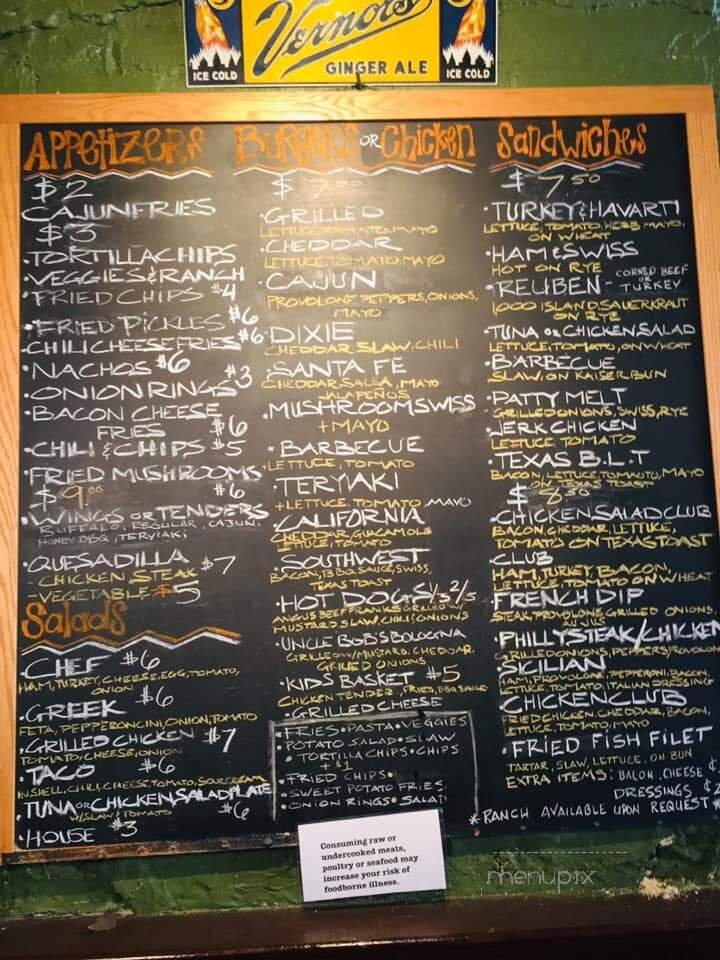 Vernors
GINGER ALE
ICE COLD
ICE COLD
APPETIZERS
$2
CAJUN FRIES
$3
•TORTILLA CHIPS
•VEGGIES & RANCH
•FRIED CHIPS $4
•FRIED PICKLES $6
•CHILI CHEESE FRIES $6
•NACHOS $6
•ONION RINGS $3
•BACON CHEESE
FRIES $6
•CHILI & CHIPS $5
•FRIED MUSHROOMS
$6
$9.00
•WINGS OR TENDERS
BUFFALO, REGULAR, CAJUN,
HONEY BBQ, TERYIAKI
•QUESADILLA
- CHICKEN, STEAK $7
- VEGETABLE - $5
Salads
•CHEF $6
HAM, TURKEY, CHEESE, EGG, TOMATO,
ONION
•GREEK $6
FETA, PEPPERONCINI, ONION, TOMATO
•GRILLED CHICKEN $7
TOMATO, CHEESE, ONION
•TACO $6
IN SHELL, CHILI, CHEESE, TOMATO, SOUR CREAM
•TUNA OR CHICKEN SALAD PLATE
W/SLAW & TOMATO $6
•HOUSE $3
BURGERS OR Chicken
$7.50
•GRILLED
LETTUCE, TOMATO, MAYO
•CHEDDAR
LETTUCE, TOMATO, MAYO
•CAJUN
PROVOLONE PEPPERS, ONIONS,
MAYO
•DIXIE
CHEDDAR, SLAW, CHILI
•SANTA FE
CHEDDAR, SALSA, MAYO
JALAPEÑOS
•MUSHROOM SWISS
+ MAYO
•BARBECUE
+LETTUCE, TOMATO
•TERYIAKI
+ LETTUCE, TOMATO, MAYO
•CALIFORNIA
CHEDDAR, GUACAMOLE
LETTUCE, TOMATO
•SOUTHWEST
BACON, BBQ SAUCE, SWISS,
TEXAS TOAST
•HOT DOGS 1/3 2/5
ANGUS BEEF FRANKS GRILLED W/
MUSTARD, SLAW, CHILI & ONIONS
•UNCLE BOB'S BOLOGNA
GRILLED W/MUSTARD, CHEDDAR,
GRILLED ONIONS
•KIDS BASKET $5
CHICKEN TENDER, FRIES, BBQ SAUCE
•GRILLED CHEESE
•FRIES •PASTA •VEGGIES
•POTATO SALAD •SLAW
•TORTILLA CHIPS •CHIPS
+ $1
•FRIED CHIPS•
•SWEET POTATO FRIES
•ONION RINGS• SALAD
Sandwiches
$7.50
•TURKEY & HAVARTI
LETTUCE, TOMATO, HERB MAYO,
ON WHEAT
•HAM & SWISS
HOT ON RYE
•REUBEN - CORNED BEEF
OR TURKEY
1000 ISLAND, SAUERKRAUT
ON RYE
•TUNA OR CHICKEN SALAD
LETTUCE, TOMATO, ON WHEAT
•BARBECUE
SLAW, ON KAISER BUN
•PATTY MELT
GRILLED ONIONS, SWISS, RYE
•JERK CHICKEN
LETTUCE TOMATO
•TEXAS B.L.T
BACON, LETTUCE, TOMAUTO, MAYO
ON TEXAS TOAST
$8.50
•CHICKEN SALAD CLUB
BACON, CHEDDAR, LETTUCE,
TOMATO ON TEXAS TOAST
•CLUB
HAM, TURKEY, BACON,
LETTUCE, TOMATO ON WHEAT
•FRENCH DIP
STEAK, PROVOLONE, GRILLED ONIONS
AU JUS
•PHILLY STEAK/CHICKEN
GRILLED ONIONS, PEPPERS, PROVOLON
•SICILIAN
HAM, PROVOLONE, PEPPERONI, BACON,
LETTUCE, TOMATO, ITALIAN DRESSING
•CHICKEN CLUB
FRIED CHICKEN, CHEDDAR, BACON,
LETTUCE, TOMATO, MAYO
•FRIED FISH FILET
TARTAR, SLAW, LETTUCE, ON BUN
EXTRA ITEMS: BACON, CHEESE
DRESSINGS
*RANCH AVAILABLE UPON REQUEST*
Consuming raw or
undercooked meats,
poultry or seafood may
increase your risk of
foodborne illness.
menupix